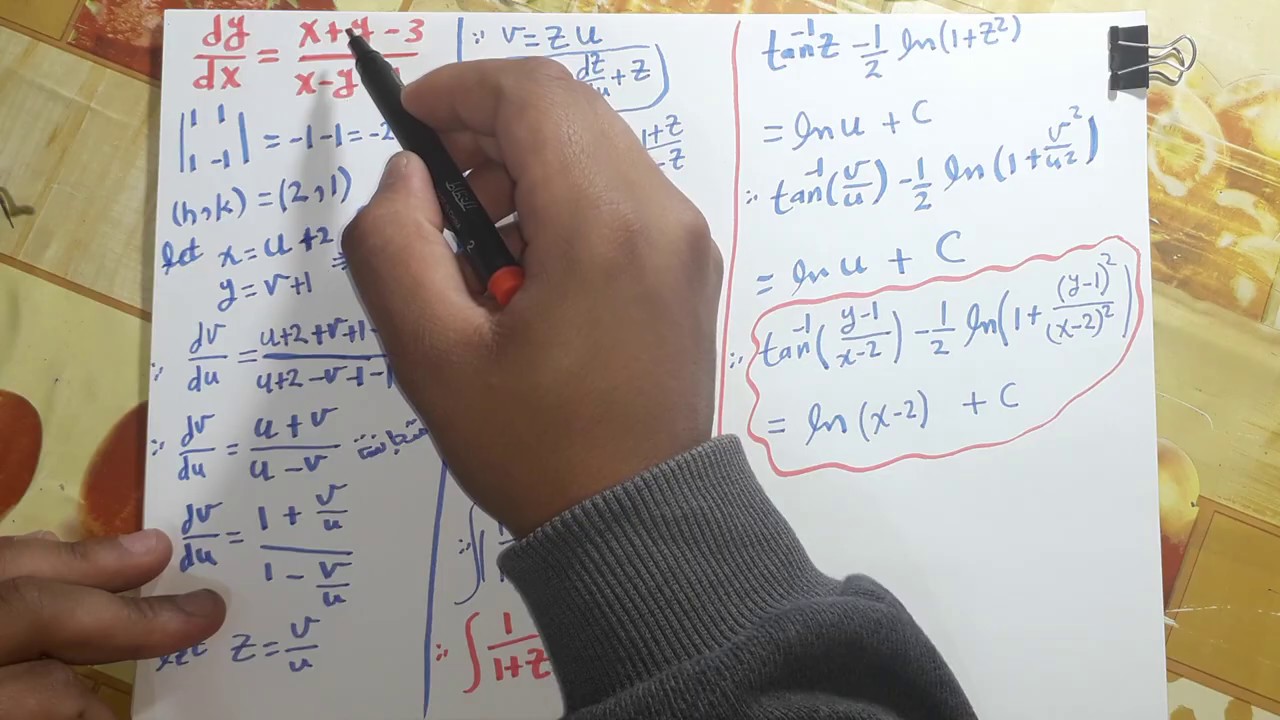 dy/dx = x+y-3 / x-y
|1 1|
|1 -1| = -1-1=-2
(h,k)=(2,1)
let x=u+2
y=v+1
∴ dv/du = u+2+v+1- / u+2-v-1-1
∴ dv/du = u+v / u-v متجانسة
dv/du = 1+v/u / 1-v/u
let z=v/u
∵ v=zu
dz/du +z
1+z / -z
∴ ∫
∴ ∫ 1/1+z
tan⁻¹z - 1/2 ln(1+z²)
= ln u + C
∴ tan⁻¹(v/u) - 1/2 ln(1+v²/u²)
= ln u + C
∴ tan⁻¹(y-1/x-2) - 1/2 ln(1+(y-1)²/(x-2)²)
= ln(x-2) + C